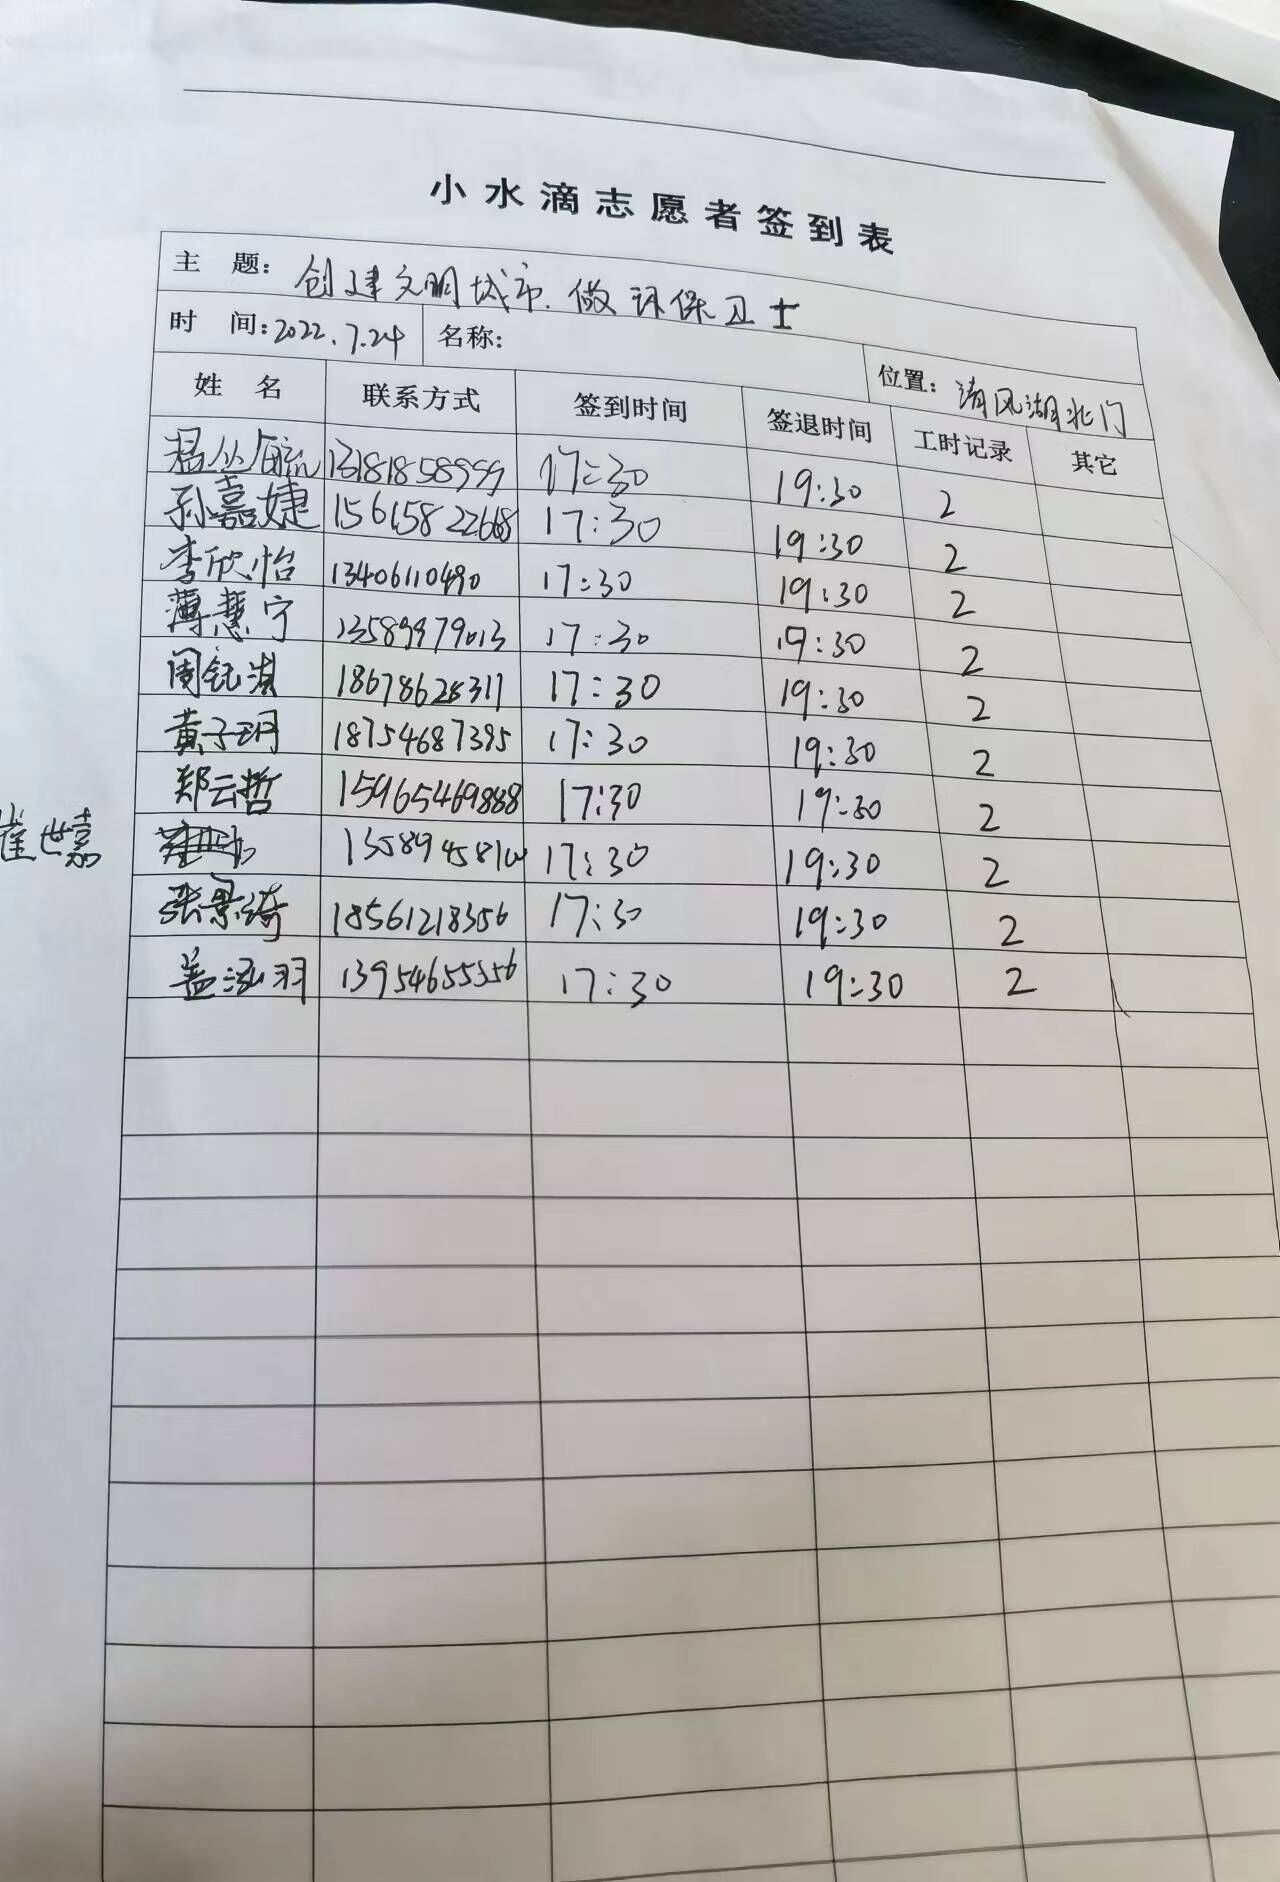 小水滴志愿者签到表
主 题: 创建文明城市.做环保卫士
时 间: 2022.7.24 名称: 位置: 清风湖北门
姓 名 联系方式 签到时间 签退时间 工时记录 其它
13181858999 17:30 19:30 2
孙嘉婕 15615822668 17:30 19:30 2
李欣怡 13406110490 17:30 19:30 2
薄慧宁 13589979013 17:30 19:30 2
周钰淇 18678628311 17:30 19:30 2
黄子玥 18754687395 17:30 19:30 2
郑云哲 15965469888 17:30 19:30 2
崔世嘉 17:30 19:30 2
张景绮 18561218356 17:30 19:30 2
盖泓羽 13954655356 17:30 19:30 2